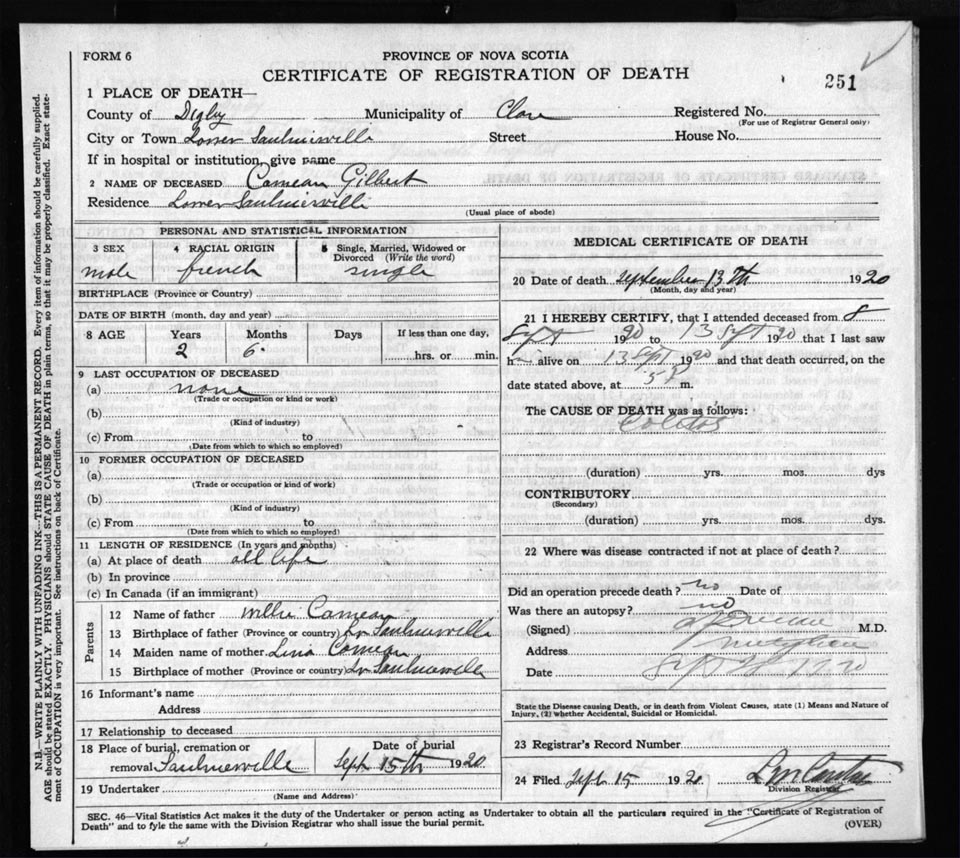 FORM 6
PROVINCE OF NOVA SCOTIA
CERTIFICATE OF REGISTRATION OF DEATH
251
1 PLACE OF DEATH—
County of Digby Municipality of Clare Registered No.
(For use of Registrar General only)
City or Town Lower Saulnierville Street House No.
If in hospital or institution, give name
2 NAME OF DECEASED Comeau Gilbert
Residence Lower Saulnierville
(Usual place of abode)
PERSONAL AND STATISTICAL INFORMATION
3 SEX 4 RACIAL ORIGIN 5 Single, Married, Widowed or Divorced (Write the word)
male french single
BIRTHPLACE (Province or Country)
DATE OF BIRTH (month, day and year)
8 AGE Years Months Days If less than one day,
2 6 hrs. or min.
9 LAST OCCUPATION OF DECEASED
(a) none
(Trade or occupation or kind or work)
(b)
(Kind of industry)
(c) From to
(Date from which to which so employed)
10 FORMER OCCUPATION OF DECEASED
(a)
(Trade or occupation or kind of work)
(b)
(Kind of industry)
(c) From to
(Date from which to which so employed)
11 LENGTH OF RESIDENCE (In years and months)
(a) At place of death all life
(b) In province
(c) In Canada (if an immigrant)
Parents
12 Name of father Willie Comeau
13 Birthplace of father (Province or country) Lr Saulnierville
14 Maiden name of mother Lina Comeau
15 Birthplace of mother (Province or country) Lr Saulnierville
16 Informant's name
Address
17 Relationship to deceased
18 Place of burial, cremation or removal Saulnierville
Date of burial Sept 15th 1920
19 Undertaker
(Name and Address)
MEDICAL CERTIFICATE OF DEATH
20 Date of death september 13th 1920
(Month, day and year)
21 I HEREBY CERTIFY, that I attended deceased from 8
Sept 1920 to 13 Sept 1920 that I last saw
him alive on 13 Sept 1920 and that death occurred, on the
date stated above, at 5 m.
The CAUSE OF DEATH was as follows:
(duration) yrs. mos. dys
CONTRIBUTORY
(Secondary)
(duration) yrs. mos. dys.
22 Where was disease contracted if not at place of death?
Did an operation precede death? no Date of
Was there an autopsy? no
(Signed) M.D.
Address
Date Sept
State the Disease causing Death, or in death from Violent Causes, state (1) Means and Nature of
Injury, (2) whether Accidental, Suicidal or Homicidal.
23 Registrar's Record Number
24 Filed Sept 15 1920
Division Registrar
SEC. 46—Vital Statistics Act makes it the duty of the Undertaker or person acting as Undertaker to obtain all the particulars required in the "Certificate of Registration of
Death" and to fyle the same with the Division Registrar who shall issue the burial permit.
(OVER)
N.B.—WRITE PLAINLY WITH UNFADING INK—THIS IS A PERMANENT RECORD. Every item of information should be carefully supplied.
AGE should be stated EXACTLY. PHYSICIANS should STATE CAUSE OF DEATH in plain terms, so that it may be properly classified. Exact state-
ment of OCCUPATION is very important. See instructions on back of Certificate.